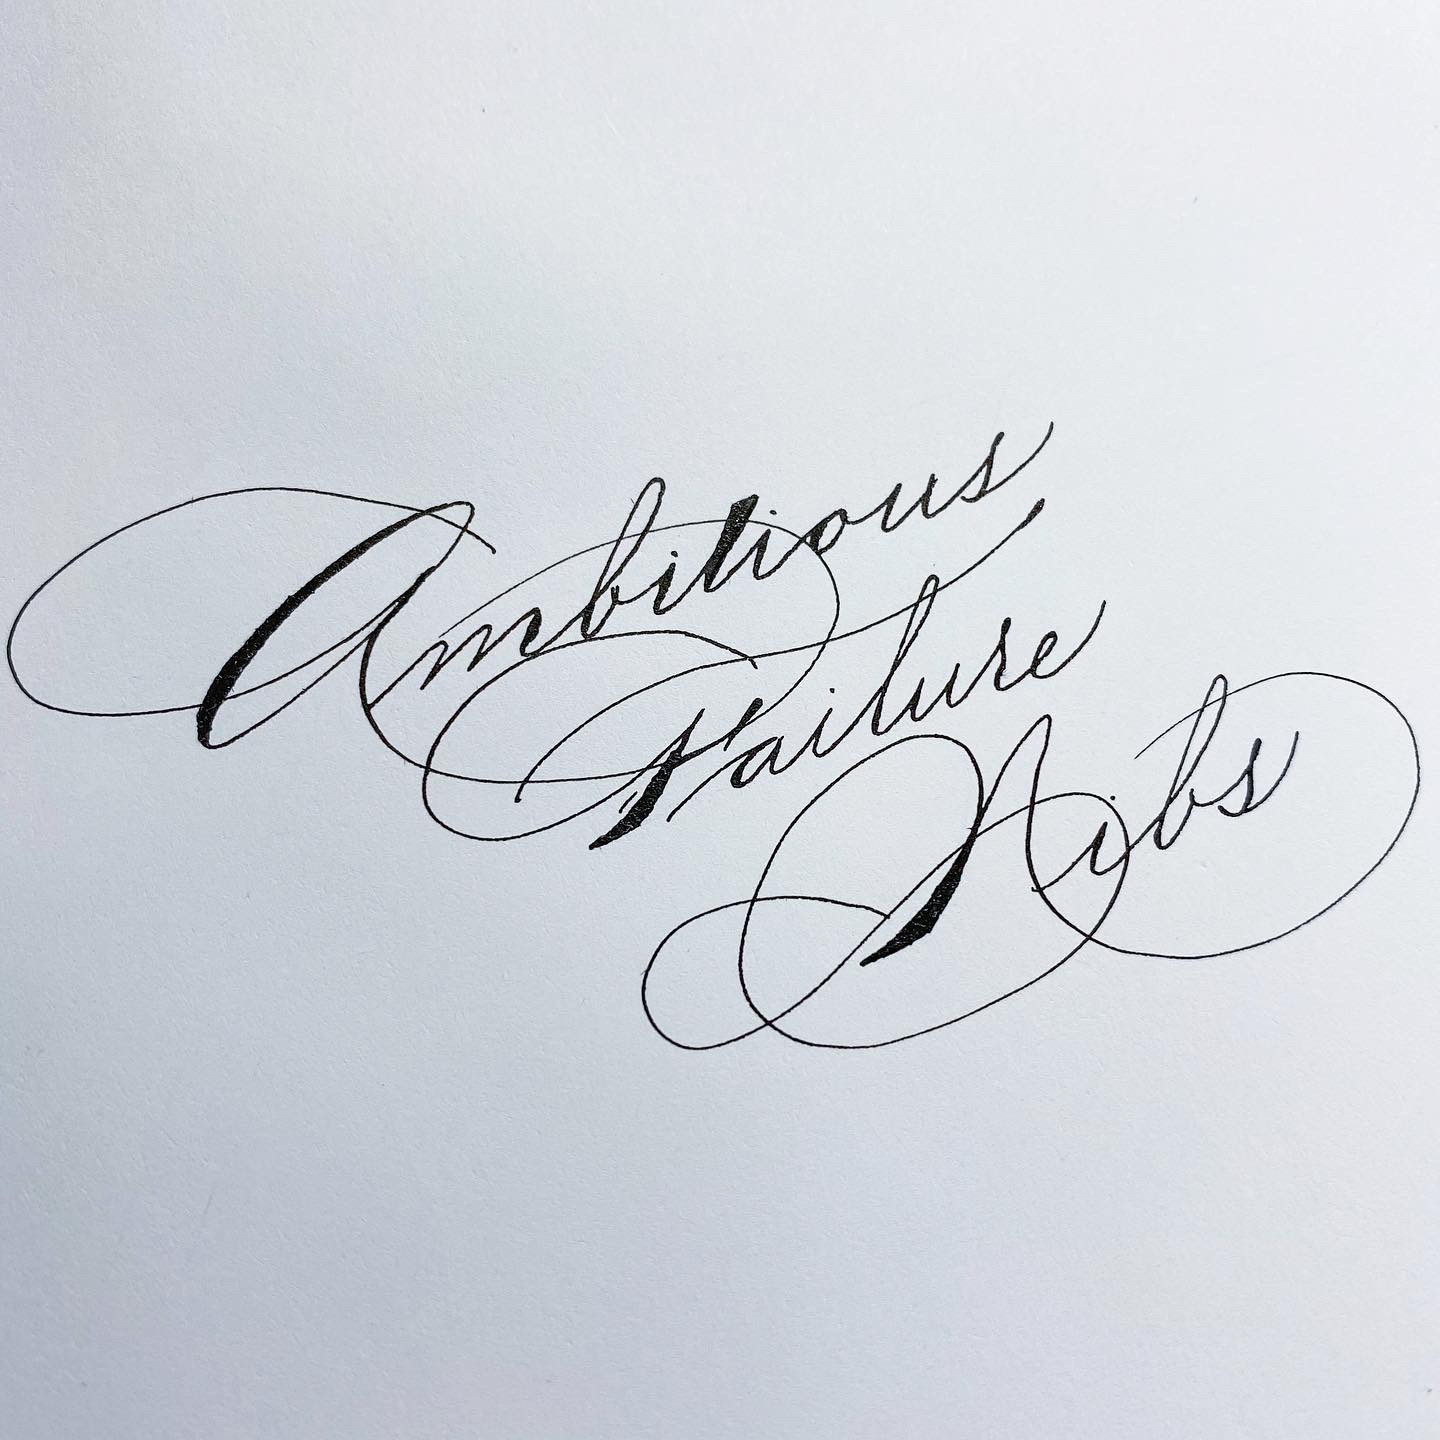 Ambitious
Failure
Nibs